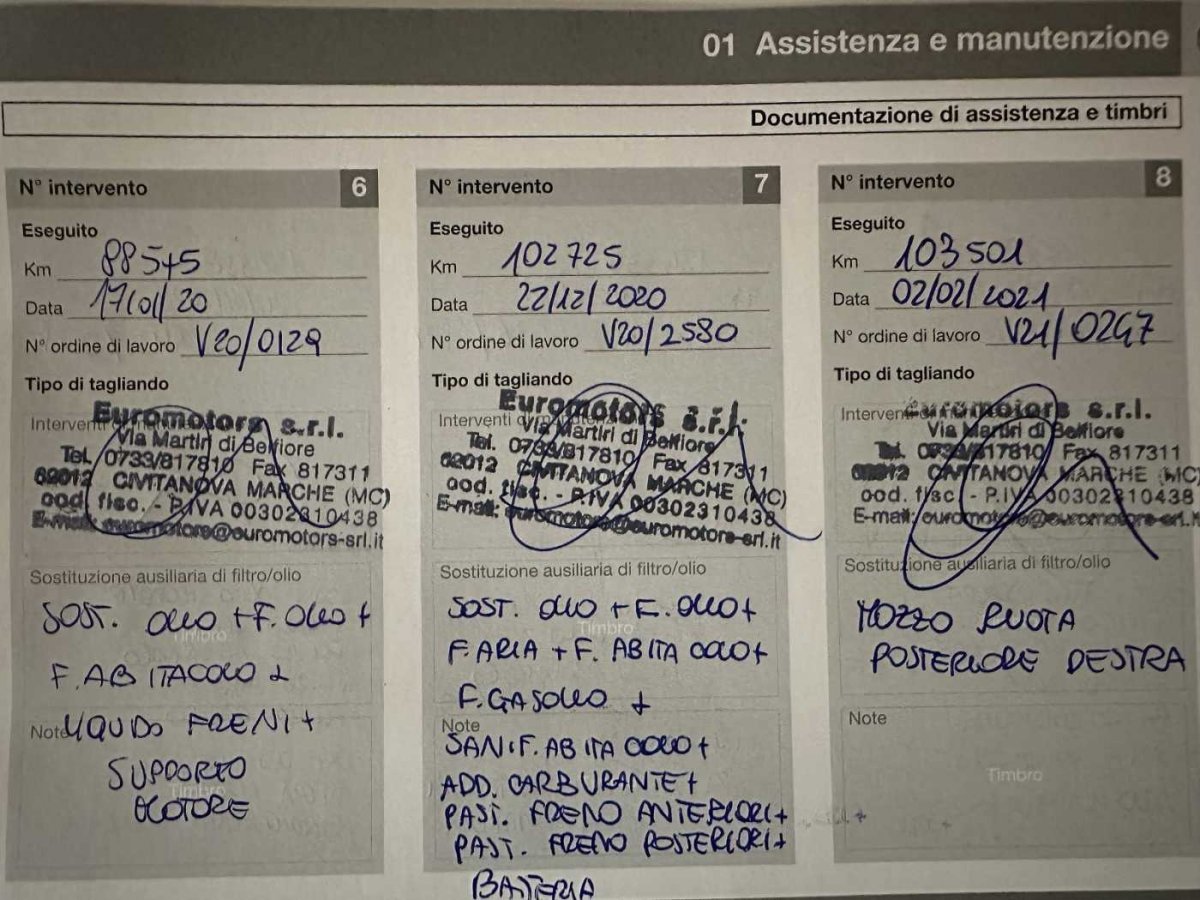 01 Assistenza e manutenzione
Documentazione di assistenza e timbri
N° intervento 6
Eseguito
Km 88545
Data 17/01/20
N° ordine di lavoro V20/0129
Tipo di tagliando
Interventi
Euromotors s.r.l.
Via Martiri di Belfiore
Tel. 0733/817810 Fax 817311
62012 CIVITANOVA MARCHE (MC)
cod. fisc. - P.IVA 00302310438
E-mail: euromotors@euromotors-srl.it
Sostituzione ausiliaria di filtro/olio
SOST. OLIO + F. OLIO +
Timbro
F. ABITACOLO +
Note LIQUIDO FRENI +
SUPPORTO
Timbro
MOTORE
N° intervento 7
Eseguito
Km 102725
Data 22/12/2020
N° ordine di lavoro V20/2580
Tipo di tagliando
Interventi
Euromotors s.r.l.
Via Martiri di Belfiore
Tel. 0733/817810 Fax 817311
62012 CIVITANOVA MARCHE (MC)
cod. fisc. - P.IVA 00302310438
E-mail: euromotors@euromotors-srl.it
Sostituzione ausiliaria di filtro/olio
SOST. OLIO + F. OLIO +
Timbro
F. ARIA + F. ABITACOLO +
F. GASOLIO +
Note
SANIF. ABITACOLO +
ADD. CARBURANTE +
PAST. FRENO ANTERIORI +
PAST. FRENO POSTERIORI +
BATTERIA
N° intervento 8
Eseguito
Km 103501
Data 02/02/2021
N° ordine di lavoro V21/0247
Tipo di tagliando
Interventi
Euromotors s.r.l.
Via Martiri di Belfiore
Tel. 0733/817810 Fax 817311
62012 CIVITANOVA MARCHE (MC)
cod. fisc. - P.IVA 00302310438
E-mail: euromotors@euromotors-srl.it
Sostituzione ausiliaria di filtro/olio
MOZZO RUOTA
POSTERIORE DESTRA
Note
Timbro